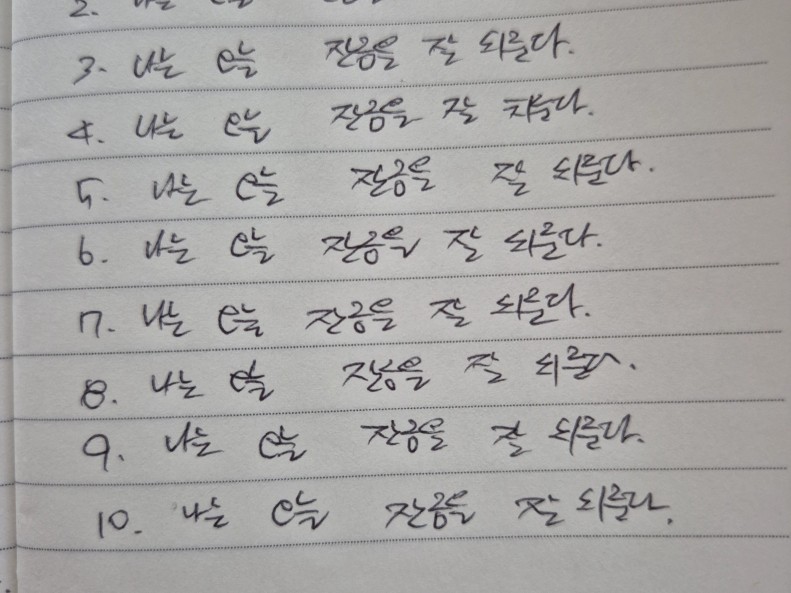 2. 나는 오늘
3. 나는 오늘 잔금을 잘 치룬다.
4. 나는 오늘 잔금을 잘 치룬다.
5. 나는 오늘 잔금을 잘 치룬다.
6. 나는 오늘 잔금을 잘 치룬다.
7. 나는 오늘 잔금을 잘 치룬다.
8. 나는 오늘 잔금을 잘 치룬다.
9. 나는 오늘 잔금을 잘 치룬다.
10. 나는 오늘 잔금을 잘 치룬다.